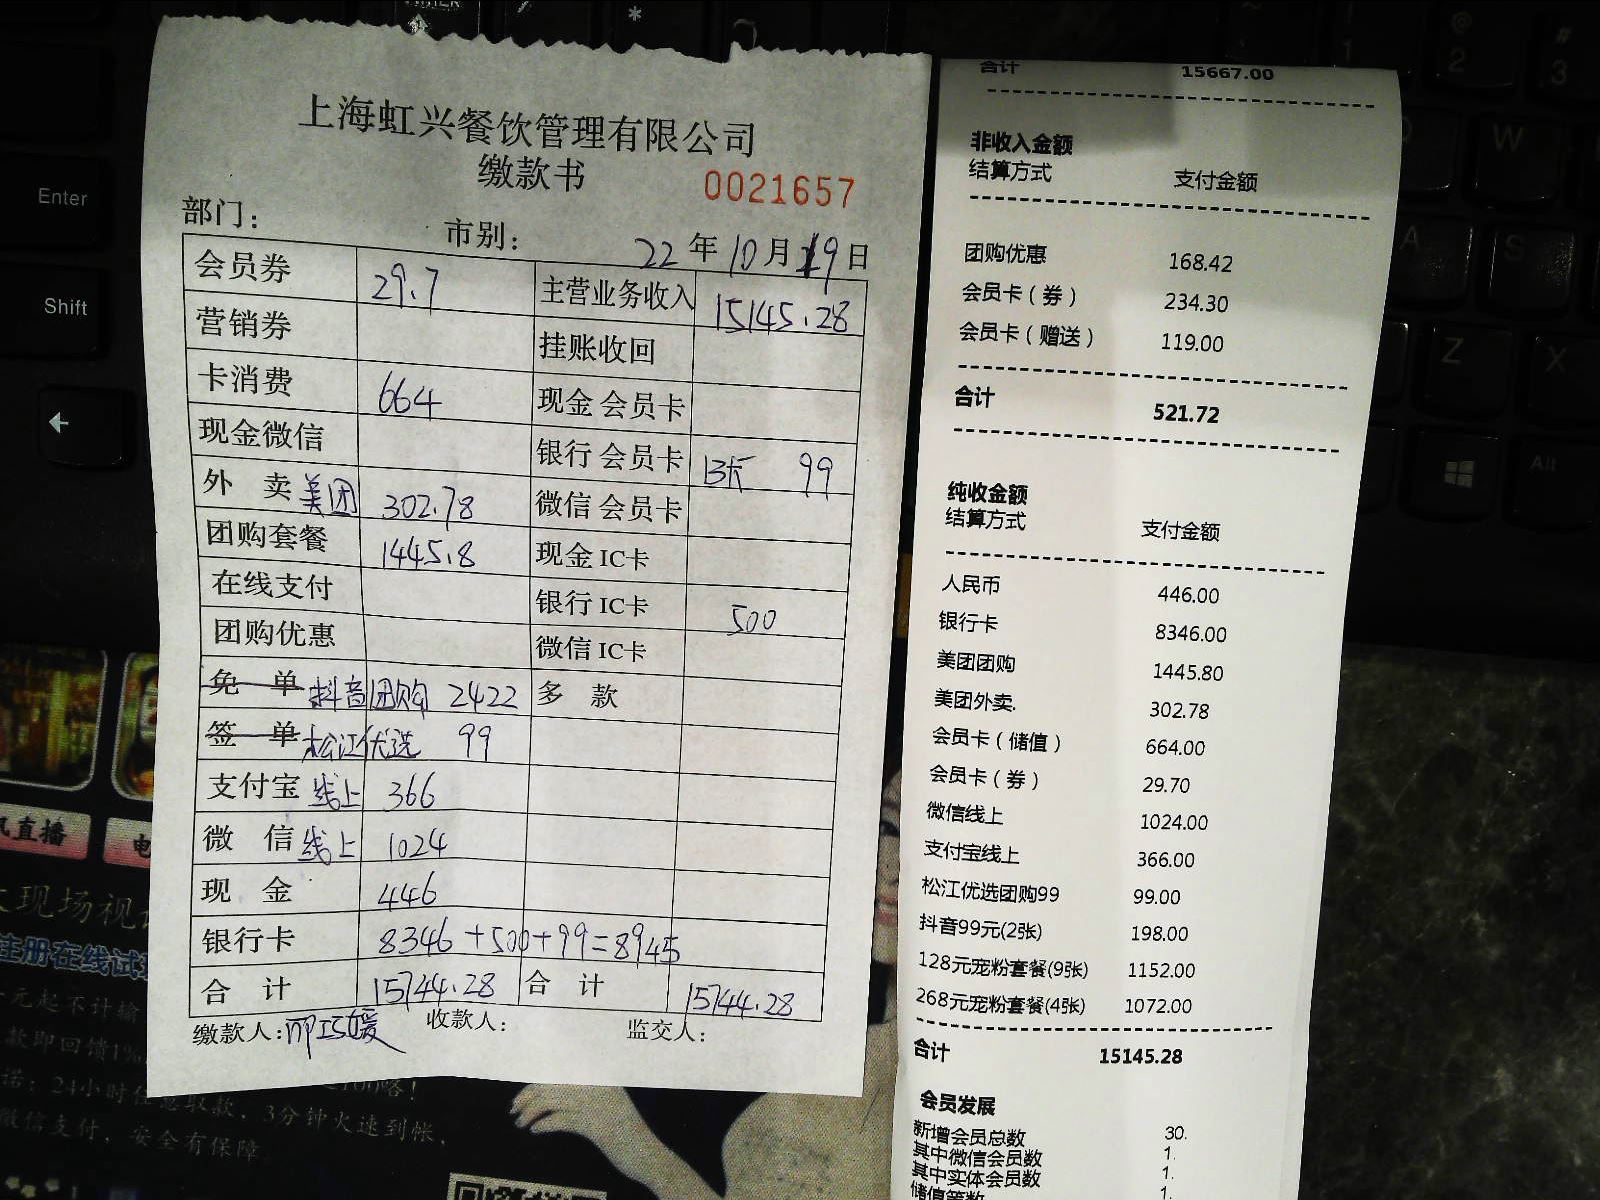 上海虹兴餐饮管理有限公司
缴款书
0021657
部门： 市别： 22 年 10 月 19 日
会员券 29.7 主营业务收入 15145.28
营销券 挂账收回
卡消费 664 现金 会员卡
现金微信 银行 会员卡 B卡 99
外 卖 美团 302.78 微信 会员卡
团购套餐 1445.8 现金 IC卡
在线支付 银行 IC卡 500
团购优惠 微信 IC卡
免 单 抖音团购 2422 多 款
签 单 松江优选 99
支付宝 线上 366
微 信 线上 1024
现 金 446
银行卡 8346+500+99=8945
合 计 15744.28 合 计 15744.28
缴款人： 收款人： 监交人：
合计 15667.00
非收入金额
结算方式 支付金额
团购优惠 168.42
会员卡（券） 234.30
会员卡（赠送） 119.00
合计 521.72
纯收金额
结算方式 支付金额
人民币 446.00
银行卡 8346.00
美团团购 1445.80
美团外卖. 302.78
会员卡（储值） 664.00
会员卡（券） 29.70
微信线上 1024.00
支付宝线上 366.00
松江优选团购99 99.00
抖音99元(2张) 198.00
128元宠粉套餐(9张) 1152.00
268元宠粉套餐(4张) 1072.00
合计 15145.28
会员发展
新增会员总数 30.
其中微信会员数 1.
其中实体会员数 1.
储值笔数 1.
Enter
Shift
W
A
S
Z
X
Alt
2
3
直播
电
现场视
注册在线试
元起不计输
款即回馈1%
诺：24小时任意取款，3分钟火速到帐，
微信支付，安全有保障